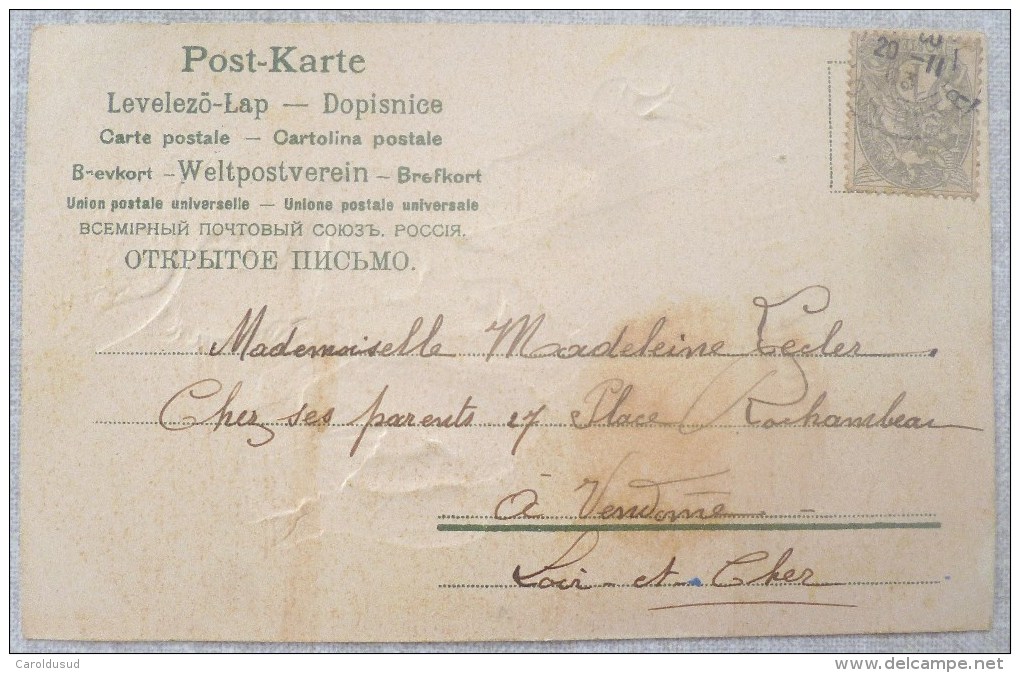 Post-Karte
Levelező-Łap — Dopisnice
Carte postale — Cartolina postale
Brevkort – Weltpostverein – Brefkort
Union postale universelle — Unione postale universale
ВСЕМІРНЫЙ ПОЧТОВЫЙ СОЮЗЪ. РОССІЯ.
ОТКРЫТОЕ ПИСЬМО.
20 -11
Mademoiselle Madeleine Lecler
Chez ses parents 27 Place Rochambeau
à Vendôme
Loir-et-Cher
Caroldusud
www.delcampe.net